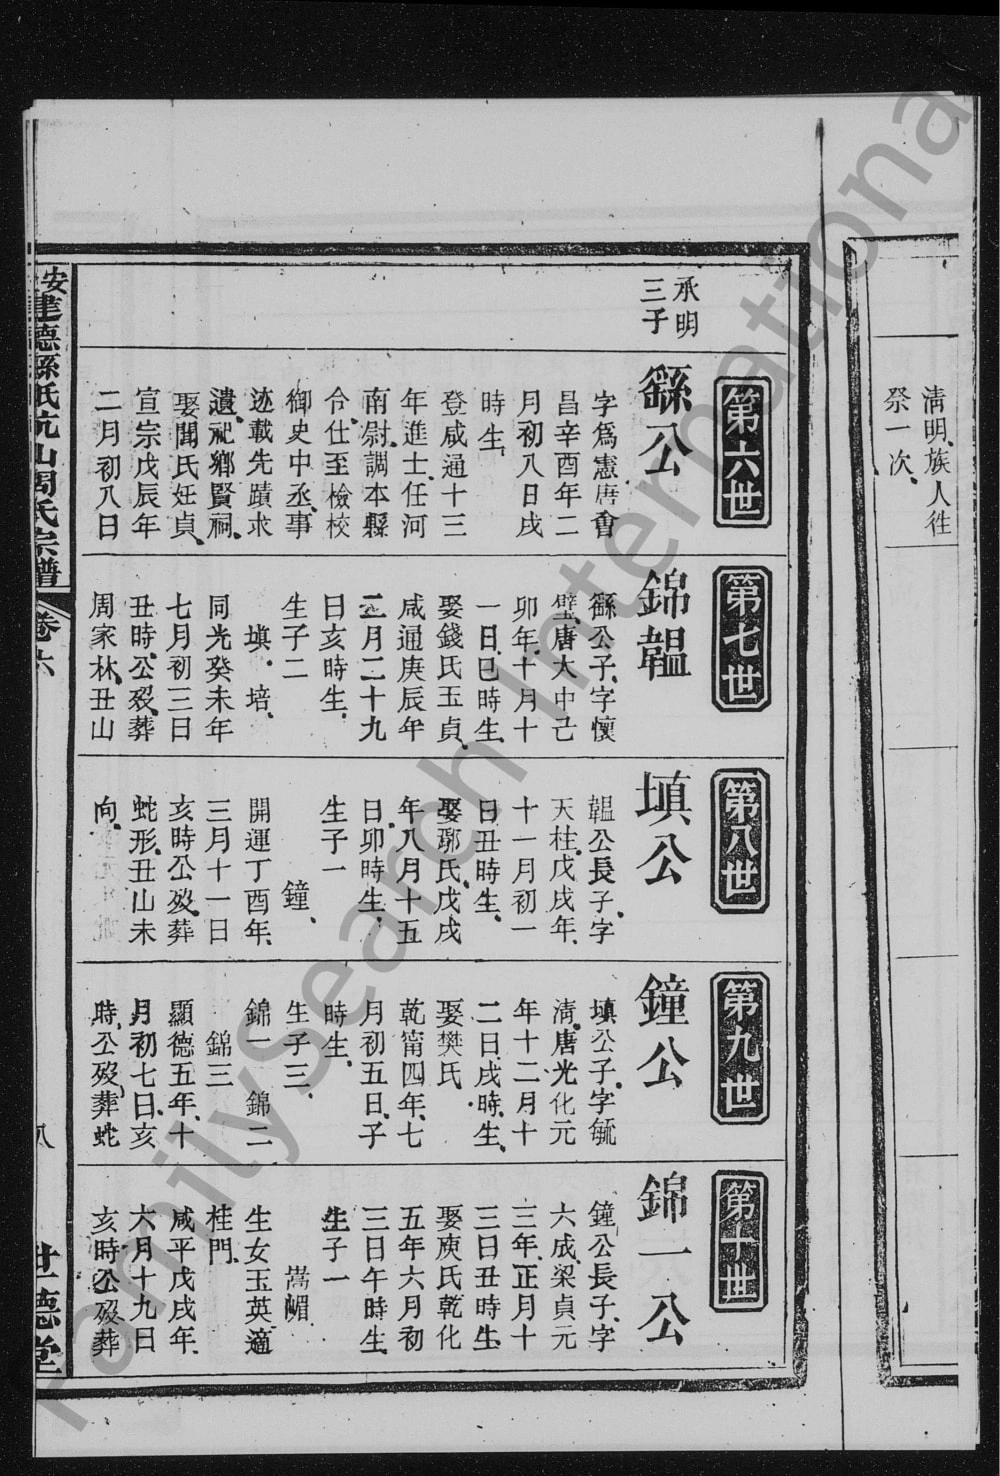 清明族人徃
祭一次
承明
三子
第六世
繇公
字爲憲唐會
昌辛酉年二
月初八日戌
時生
登咸通十三
年進士任河
南尉調本縣
令仕至檢校
御史中丞事
迹載先蹟求
遺祀鄉賢祠
娶聞氏妊貞
宣宗戊辰年
二月初八日
第七世
錦韞
繇公子字懷
璧唐大中己
卯年十月十
一日巳時生
娶錢氏玉貞
咸通庚辰年
二月二十九
日亥時生
生子二
塡 培
同光癸未年
七月初三日
丑時公歿葬
周家林丑山
第八世
塡公
韞公長子字
天柱戊戌年
十一月初一
日丑時生
娶鄢氏戊戌
年八月十五
日卯時生
生子一
鐘
開運丁酉年
三月十一日
亥時公歿葬
蛇形丑山未
向
第九世
鐘公
塡公子字毓
清唐光化元
年十二月十
二日戌時生
娶樊氏
乾甯四年七
月初五日子
時生
生子三
錦一 錦二
錦三
顯德五年十
月初七日亥
時公歿葬蛇
第十世
錦一公
鐘公長子字
六成梁貞元
三年正月十
三日丑時生
娶庾氏乾化
五年六月初
三日午時生
生子一
嵩嵋
生女玉英適
桂門
咸平戊戌年
六月十九日
亥時公歿葬
建德縣玳坑山周氏宗譜
卷六
八
世德堂
FamilySearch International